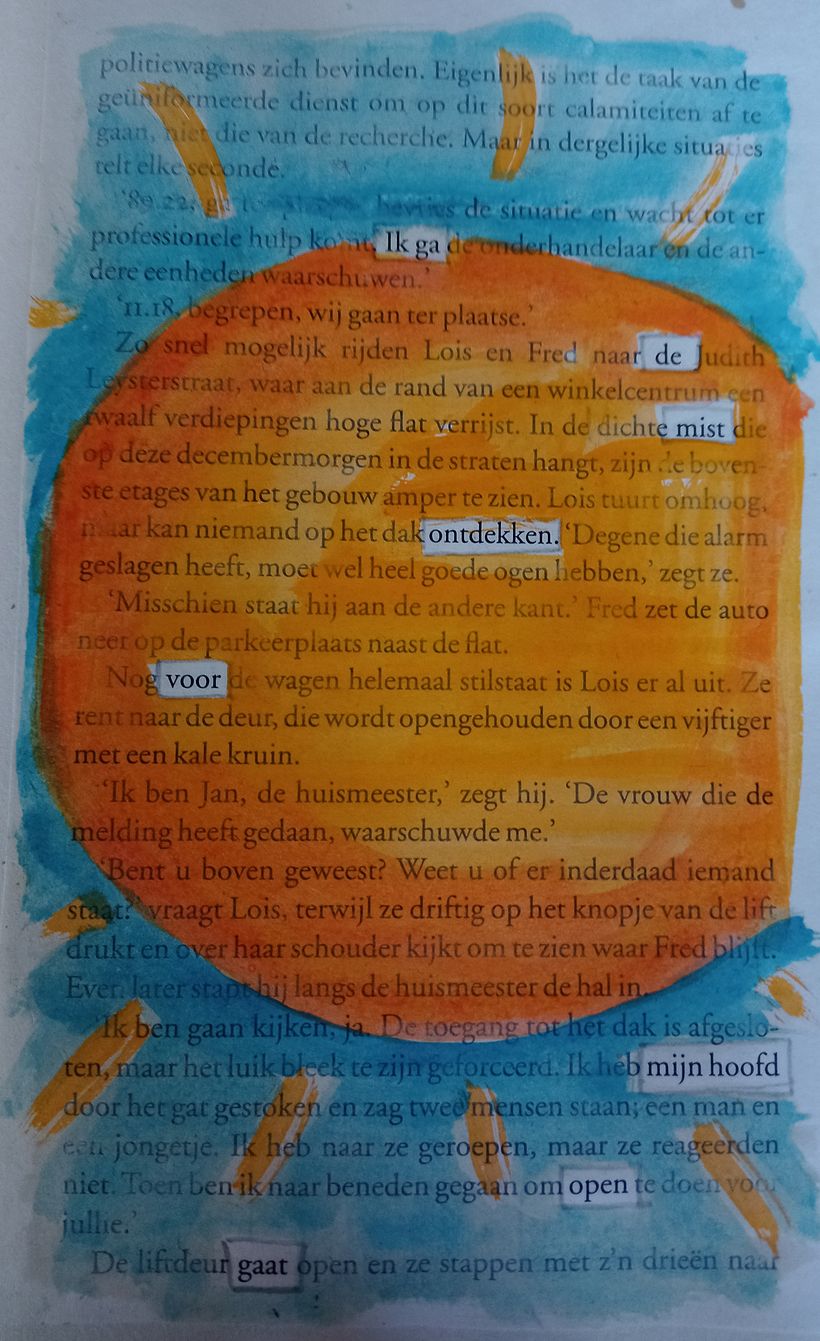 politiewagens zich bevinden. Eigenlijk is het de taak van de
geüniformeerde dienst om op dit soort calamiteiten af te
gaan, niet die van de recherche. Maar in dergelijke situaties
telt elke seconde.
‘89.22, ga bevries de situatie en wacht tot er
professionele hulp komt. Ik ga de onderhandelaar en de an-
dere eenheden waarschuwen.’
‘11.18, begrepen, wij gaan ter plaatse.’
Zo snel mogelijk rijden Lois en Fred naar de Judith
Leysterstraat, waar aan de rand van een winkelcentrum een
twaalf verdiepingen hoge flat verrijst. In de dichte mist die
op deze decembermorgen in de straten hangt, zijn de boven-
ste etages van het gebouw amper te zien. Lois tuurt omhoog,
maar kan niemand op het dak ontdekken. ‘Degene die alarm
geslagen heeft, moet wel heel goede ogen hebben,’ zegt ze.
‘Misschien staat hij aan de andere kant.’ Fred zet de auto
neer op de parkeerplaats naast de flat.
Nog voor de wagen helemaal stilstaat is Lois er al uit. Ze
rent naar de deur, die wordt opengehouden door een vijftiger
met een kale kruin.
‘Ik ben Jan, de huismeester,’ zegt hij. ‘De vrouw die de
melding heeft gedaan, waarschuwde me.’
‘Bent u boven geweest? Weet u of er inderdaad iemand
staat?’ vraagt Lois, terwijl ze driftig op het knopje van de lift
drukt en over haar schouder kijkt om te zien waar Fred blijft.
Even later stapt hij langs de huismeester de hal in.
‘Ik ben gaan kijken, ja. De toegang tot het dak is afgeslo-
ten, maar het luik bleek te zijn geforceerd. Ik heb mijn hoofd
door het gat gestoken en zag twee mensen staan; een man en
een jongetje. Ik heb naar ze geroepen, maar ze reageerden
niet. Toen ben ik naar beneden gegaan om open te doen voor
jullie.’
De liftdeur gaat open en ze stappen met z’n drieën naar